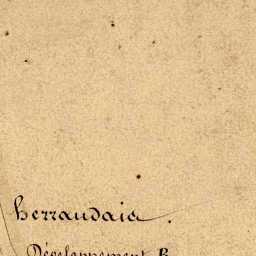 herraudais.
Développement B